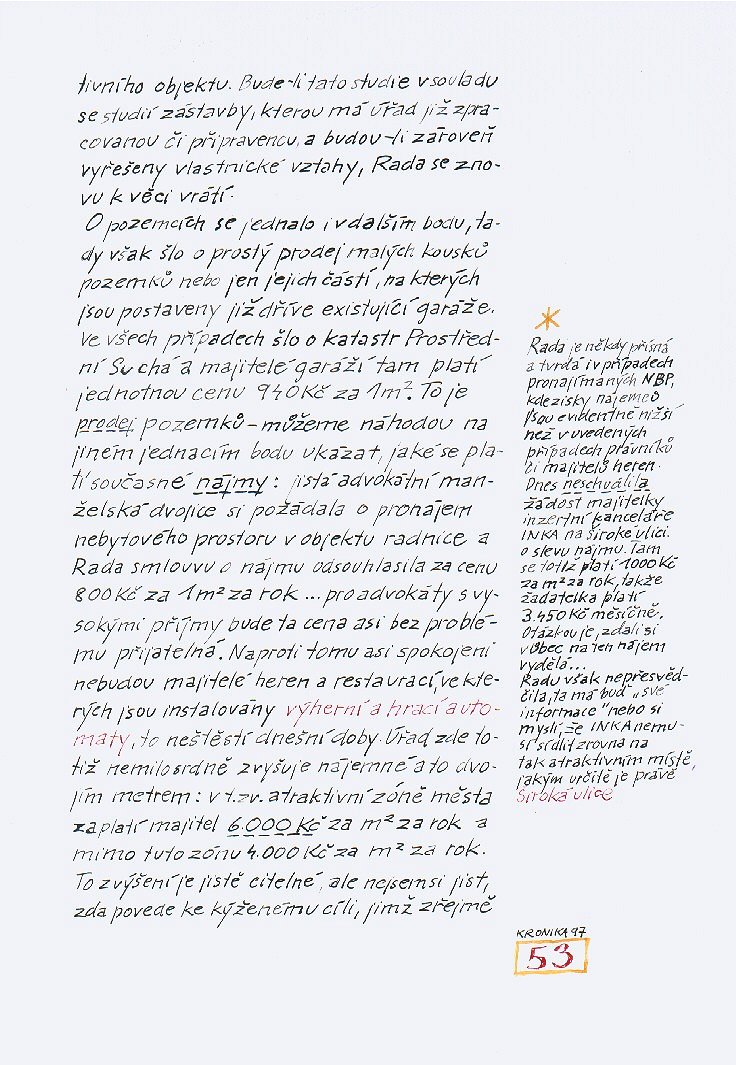 tivního objektu. Bude-li tato studie v souladu
se studií zástavby, kterou má úřad již zpra-
covanou či připravenou, a budou-li zároveň
vyřešeny vlastnické vztahy, Rada se zno-
vu k věci vrátí.
O pozemcích se jednalo i v dalším bodu, ta-
dy však šlo o prostý prodej malých kousků
pozemků nebo jen jejich částí, na kterých
jsou postaveny již dříve existující garáže.
Ve všech případech šlo o katastr Prostřed-
ní Suchá a majitelé garáží tam platí
jednotnou cenu 940 Kč za 1 m². To je
prodej pozemků - můžeme náhodou na
jiném jednacím bodu ukázat, jaké se pla-
tí současné nájmy: jistá advokátní man-
želská dvojice si požádala o pronájem
nebytového prostoru v objektu radnice a
Rada smlouvu o nájmu odsouhlasila za cenu
800 Kč za 1 m² za rok ... pro advokáty s vy-
sokými příjmy bude ta cena asi bez problé-
mu přijatelná. Naproti tomu asi spokojeni
nebudou majitelé heren a restaurací, ve kte-
rých jsou instalovány výherní a hrací auto-
maty, to neštěstí dnešní doby. Úřad zde to-
tiž nemilosrdně zvyšuje nájemné a to dvo-
jím metrem: v t.zv. atraktivní zóně města
zaplatí majitel 6.000 Kč za m² za rok a
mimo tuto zónu 4.000 Kč za m² za rok.
To zvýšení je jistě citelné, ale nejsem si jist,
zda povede ke kýženému cíli, jímž zřejmě
Rada je někdy přísná
a tvrdá i v případech
pronajímaných NBP,
kde zisky nájemců
jsou evidentně nižší
než v uvedených
případech právníků
či majitelů heren.
Dnes neschválila
žádost majitelky
inzertní kanceláře
INKA na Široké ulici
o slevu nájmu. Tam
se totiž platí 1000 Kč
za m² za rok, takže
žadatelka platí
3.450 Kč měsíčně.
Otázkou je, zdali si
vůbec na ten nájem
vydělá...
Radu však nepřesvěd-
čila, ta má buď „své
informace" nebo si
myslí, že INKA nemu-
sí sídlit zrovna na
tak atraktivním místě,
jakým určitě je právě
Široká ulice
KRONIKA 97
53